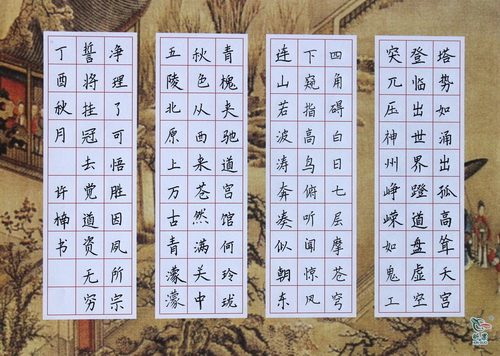 塔势如涌出孤高耸天宫
登临出世界蹬道盘虚空
突兀压神州峥嵘如鬼工
四角碍白日七层摩苍穹
下窥指高鸟俯听闻惊风
连山若波涛奔凑似朝东
青槐夹驰道宫馆何玲珑
秋色从西来苍然满关中
五陵北原上万古青濛濛
净理了可悟胜因夙所宗
誓将挂冠去觉道资无穷
丁酉秋月 许书